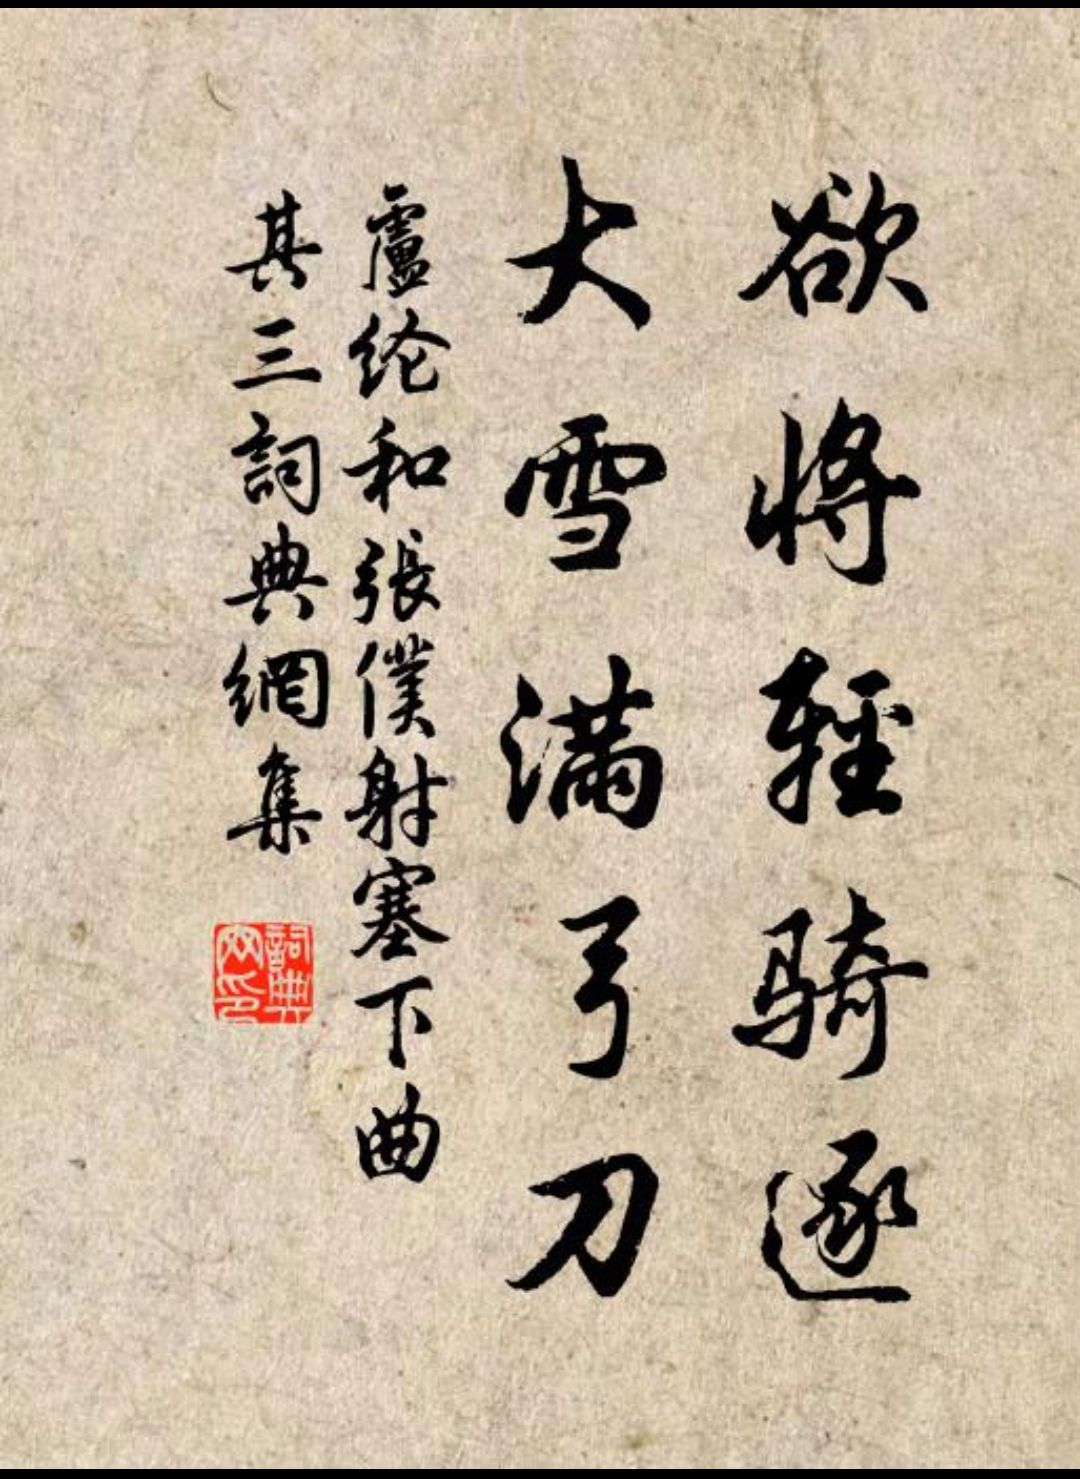 欲將輕騎逐
大雪滿弓刀
盧纶和張僕射塞下曲
其三詞典網集
詞典
网印